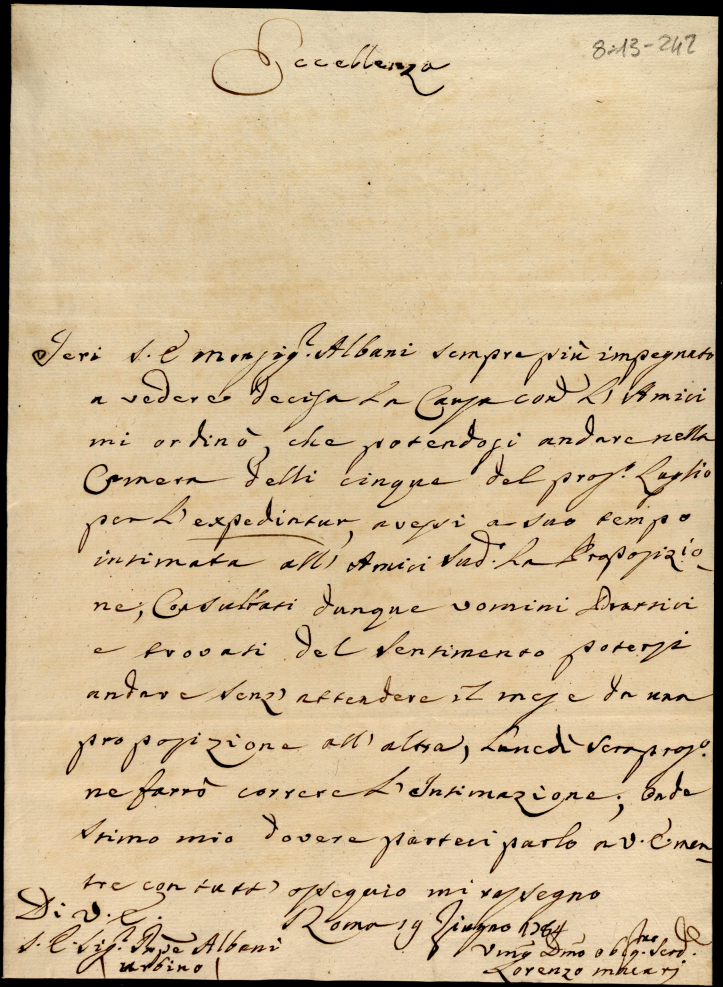 8-13-242
Eccellenza
Jeri S. E. Monsigr. Albani sempre più impegnato
a vedere decisa la Causa con L'Amici
mi ordinò, che potendosi andare nella
Camera delli cinque del pross.o Luglio
per L'expediatur, avessi a suo tempo
intimata all'Amici Sud.i La Proposizio-
ne, Consultati dunque uomini Prattici
e trovati del sentimento potersi
andare senz'attendere il mese da una
proposizione all'altra, Lunedì sera pros.o
ne farrò correre L'Intimazione; Onde
stimo mio dovere parteciparlo a V. E. men-
tre con tutt'ossequio mi rassegno
Di V. E.
Roma 19 Giugno 1754
S. E. Sigr. Pnpe Albani
Urbino
Umo Dmo oblig.mo Serd.e
Lorenzo Macarj